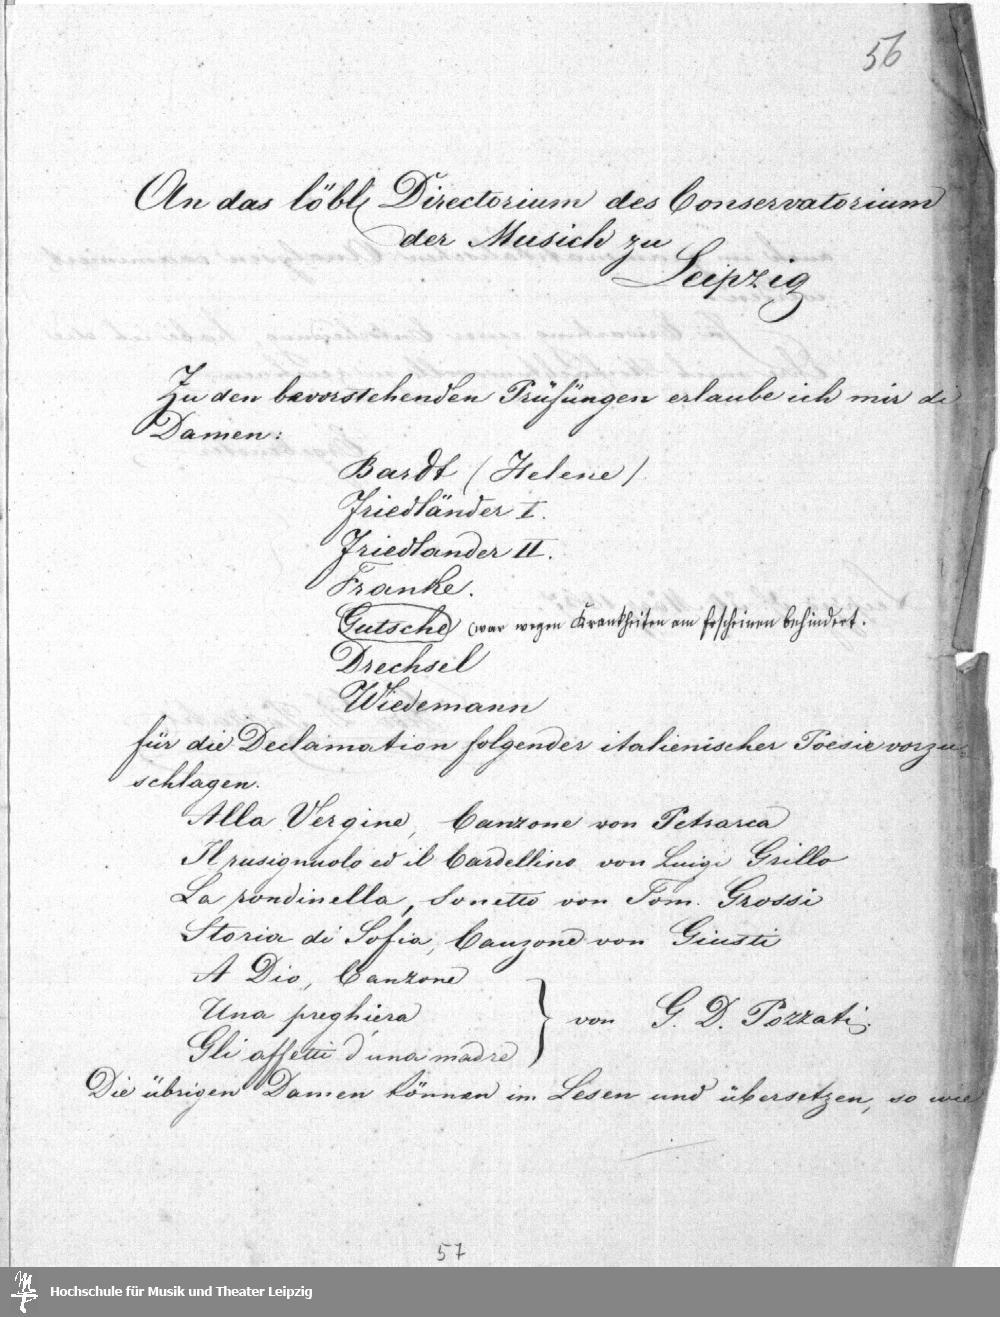 56
An das löbl Directorium des Conservatorium
der Musich zu
Leipzig
Zu den bevorstehenden Prüfüngen erlaube ich mir di
Damen:
Bardt (Helene)
Friedländer I.
Friedlander II.
Franke.
Gutsche (war wegen Krankheiten am Erscheinen behindert.
Drechsel
Wiedemann
für die Declamation folgender italienischer Poesie vorzu-
schlagen.
Alla Vergine, Canzone von Petrarca
Il rusignuolo ed il Cardellino von Luigi Grillo
La rondinella, Sonetto von Tom. Grossi
Storia di Sofia, Canzone von Giusti
A Dio, Canzone
Una preghiera
von G. D. Pozzati.
Gli affetti d'una madre
Die übrigen Damen können im Lesen und übersetzen, so wie
57
Hochschule für Musik und Theater Leipzig